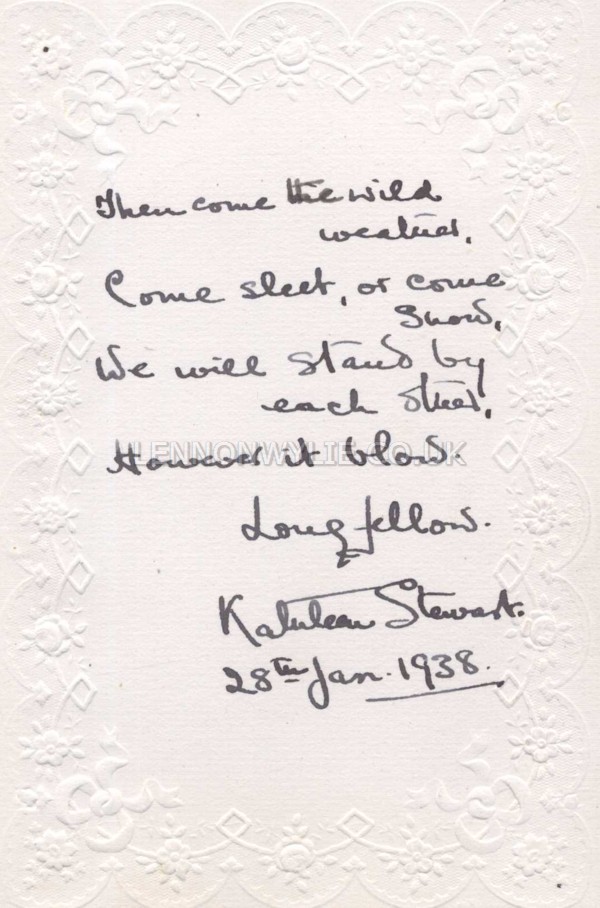 Then come the wild
weather,
Come sleet, or come
snow,
We will stand by
each other,
However it blow.
Longfellow.
Kathleen Stewart.
28th Jan. 1938.
LENNONWYLIE.CO.UK